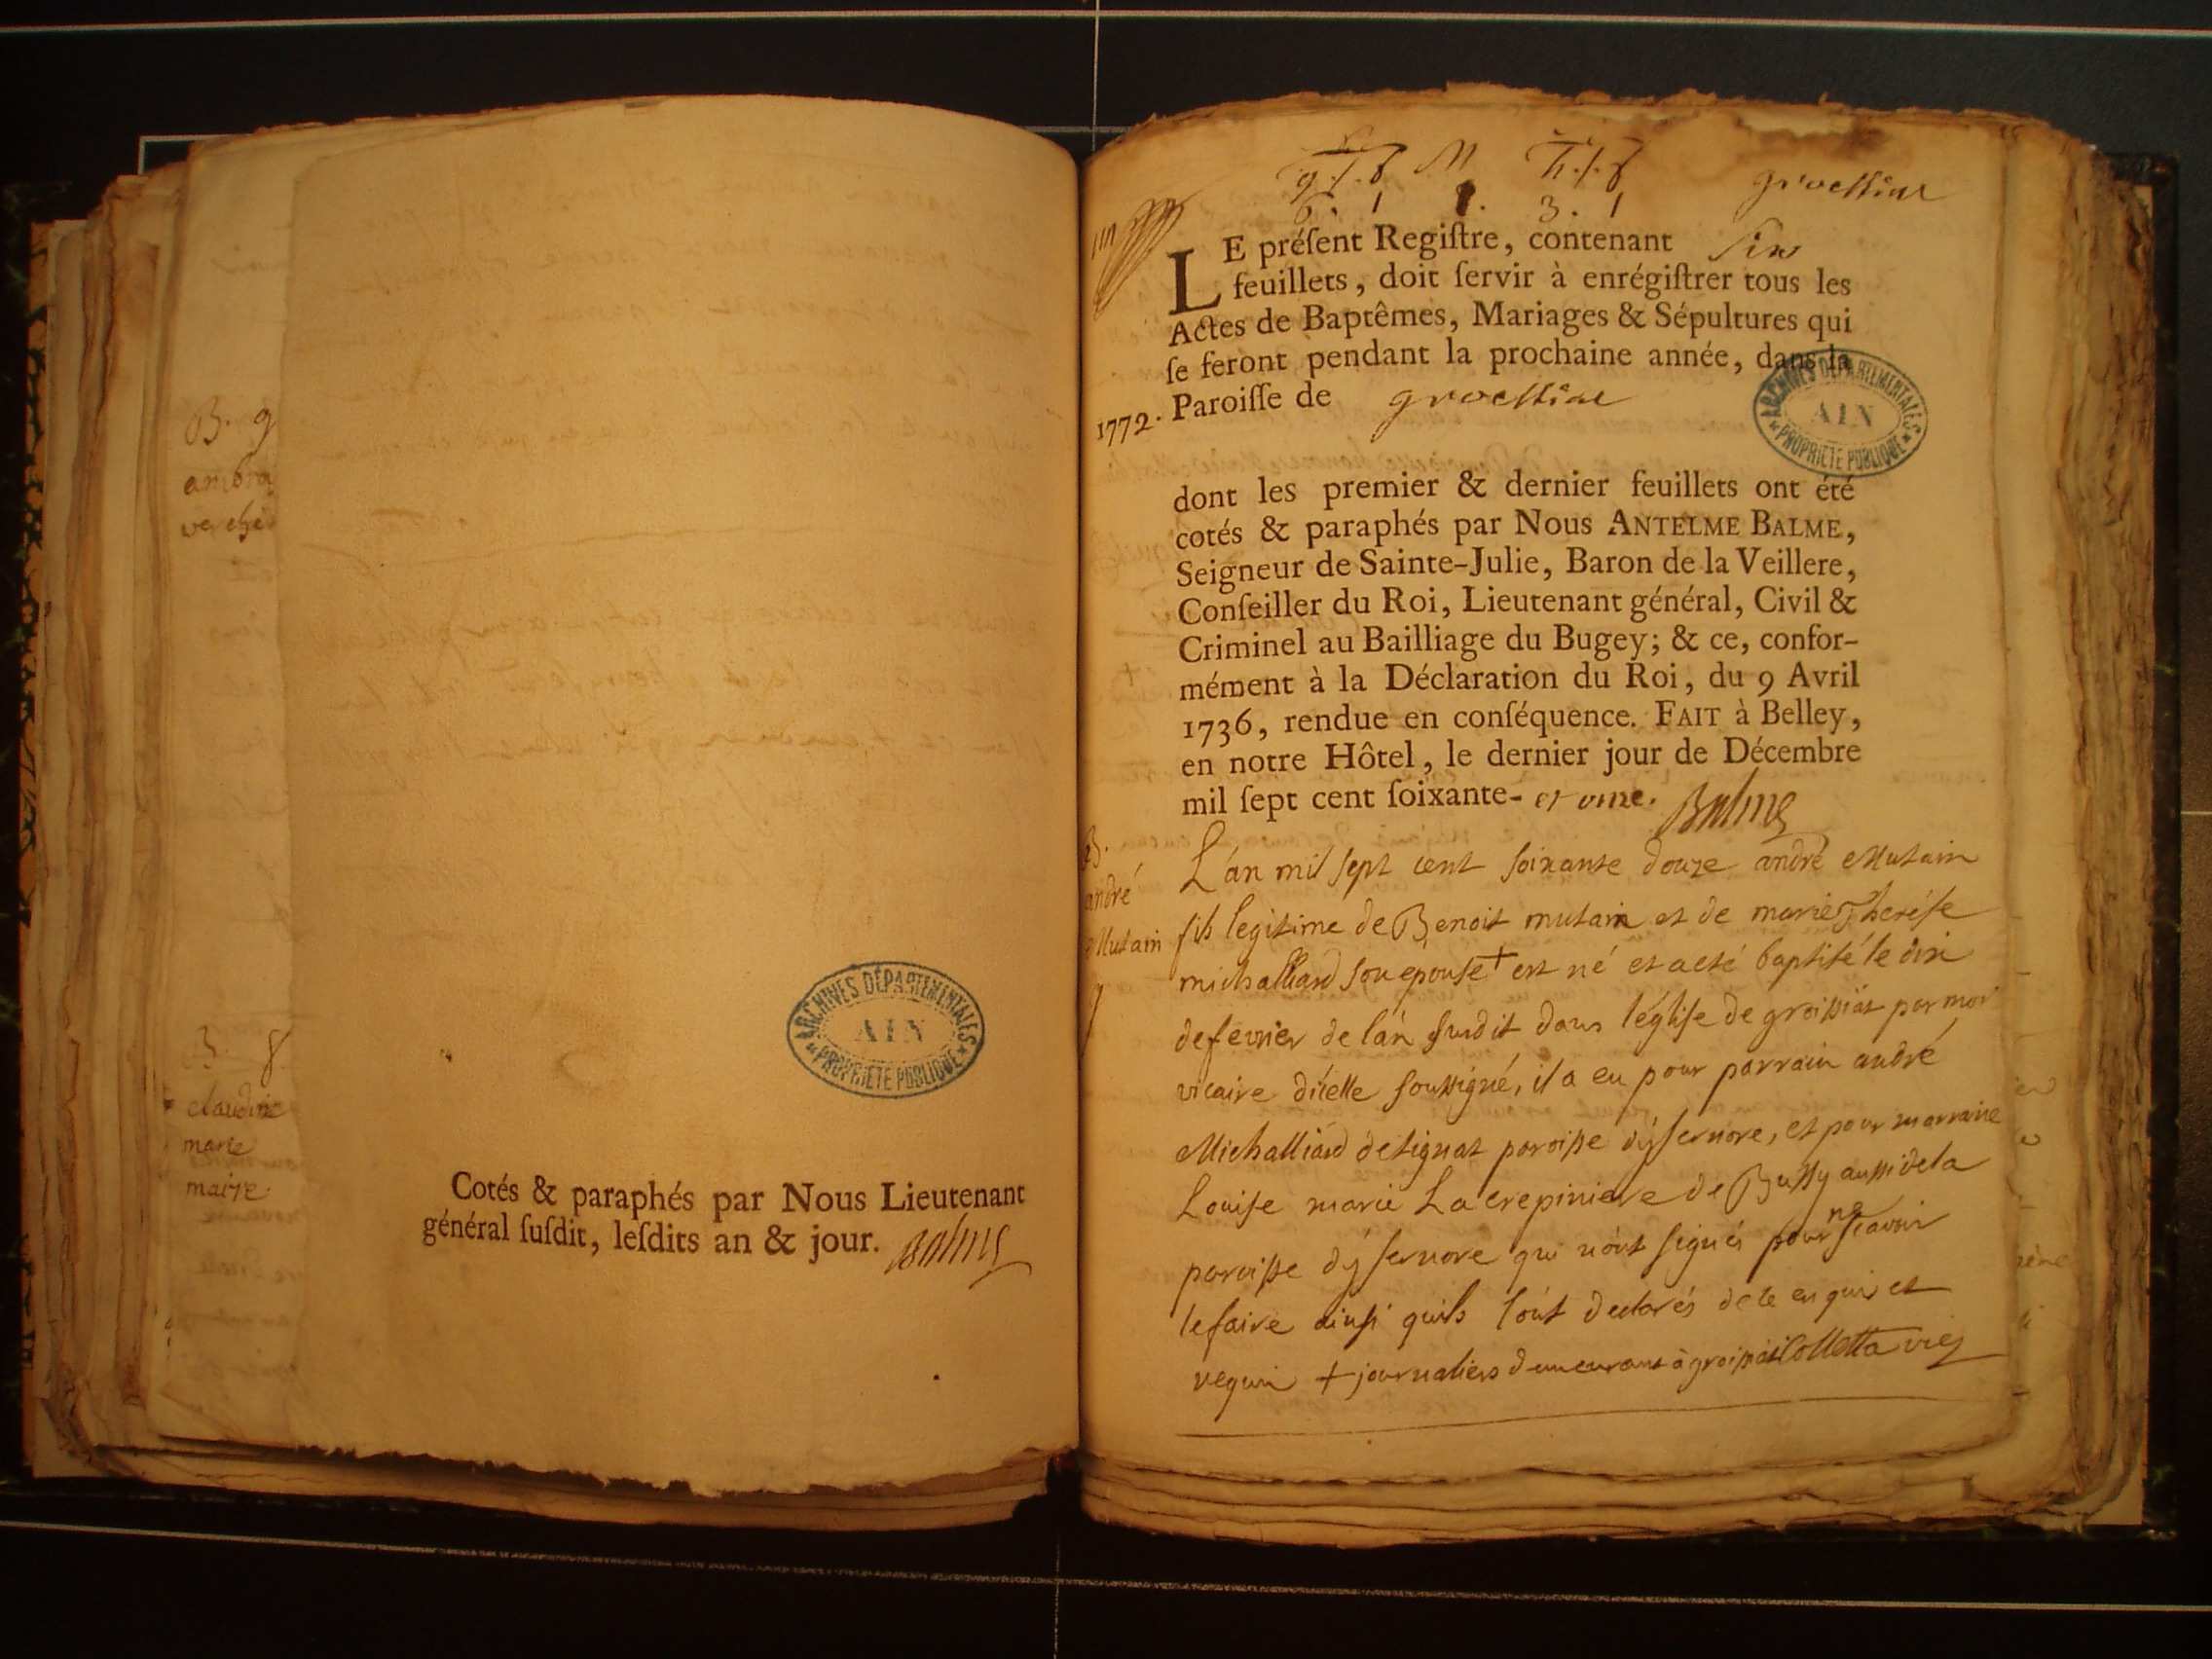 B. 9
ambroi
verchè
B. 8.
claudine
marie
maire
ARCHIVES DÉPARTEMENTALES
AIN
PROPRIÉTÉ PUBLIQUE
Cotés & paraphés par Nous Lieutenant
général ſuſdit, leſdits an & jour. Balme
g. f. M h. f.
6. 1 1. 3. 1
LE préſent Regiſtre, contenant Six
feuillets, doit ſervir à enrégiſtrer tous les
Actes de Baptêmes, Mariages & Sépultures qui
ſe feront pendant la prochaine année, dans la
1772. Paroiſſe de
ARCHIVES DÉPARTEMENTALES
AIN
PROPRIÉTÉ PUBLIQUE
dont les premier & dernier feuillets ont été
cotés & paraphés par Nous ANTELME BALME,
Seigneur de Sainte-Julie, Baron de la Veillere,
Conſeiller du Roi, Lieutenant général, Civil &
Criminel au Bailliage du Bugey; & ce, confor-
mément à la Déclaration du Roi, du 9 Avril
1736, rendue en conſéquence. FAIT à Belley,
en notre Hôtel, le dernier jour de Décembre
mil ſept cent ſoixante- et onze. Balme
B.
andré
Mutain
L'an mil sept cent soixante douze andré Mutain
fils legitime de Benoit mutain et de marie Therése
michalliard son epouse + est né et a eté baptisé le dix
de fevrier de l'an susdit dans l'église de groissiat par moi
vicaire d'icelle soussigné, il a eu pour parrain andré
Michalliard de signat paroisse d'ysernore, et pour marraine
Louise marie La crepiniere de Bussy aussi de la
paroisse d'ysernore qui n'ont signés pour ne scavoir
le faire ainsi quils l'ont declarés de ce enquis et
requis + journaliers demeurans à groissiat Colletta vic